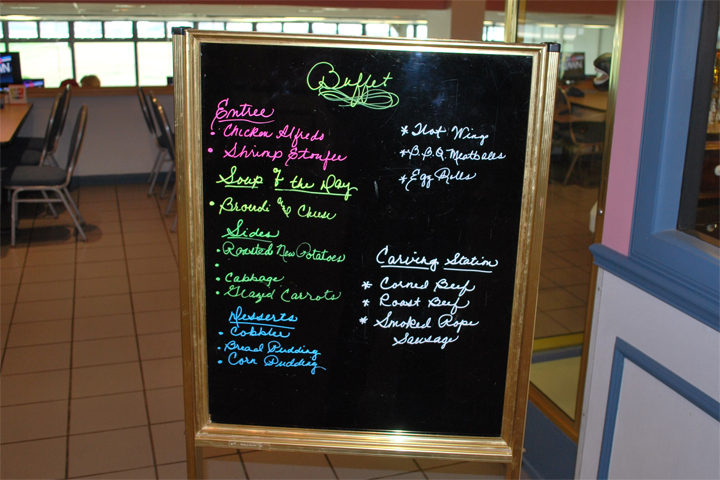 Buffet
Entree
• Chicken Alfredo
• Shrimp Etoufee
Soup of the Day
• Brocudi and Cheese
Sides
• Roasted New Potatoes
•
• Cabbage
• Glazed Carrots
Desserts
• Cobbler
• Bread Pudding
• Corn Pudding
* Hot Wings
* B.B.Q. Meatballs
* Egg Rolls
Carving Station
* Corned Beef
* Roast Beef
* Smoked Rope
Sausage